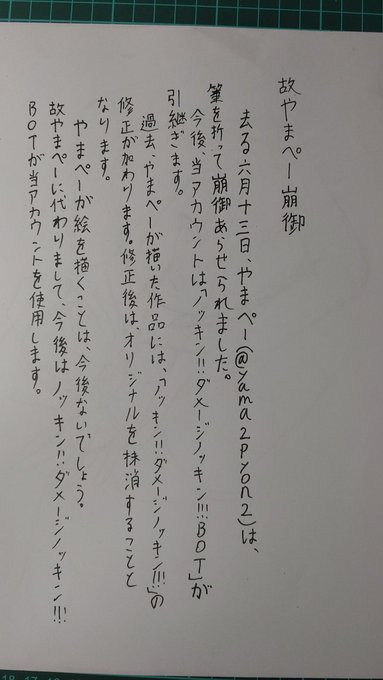 故やまぺー崩御
去る六月十三日、やまぺー(@yama2pyon2)は、
筆を折って崩御あらせられました。
今後、当アカウントは「ノッキン!!ダメージノッキン!!!BOT」が
引継ぎます。
過去、やまぺーが描いた作品には、「ノッキン!!ダメージノッキン!!!」の
修正が加わります。修正後は、オリジナルを抹消することと
なります。
やまぺーが絵を描くことは、今後ないでしょう。
故やまぺーに代わりまして、今後はノッキン!!ダメージノッキン!!!
BOTが当アカウントを使用します。
18 17 16